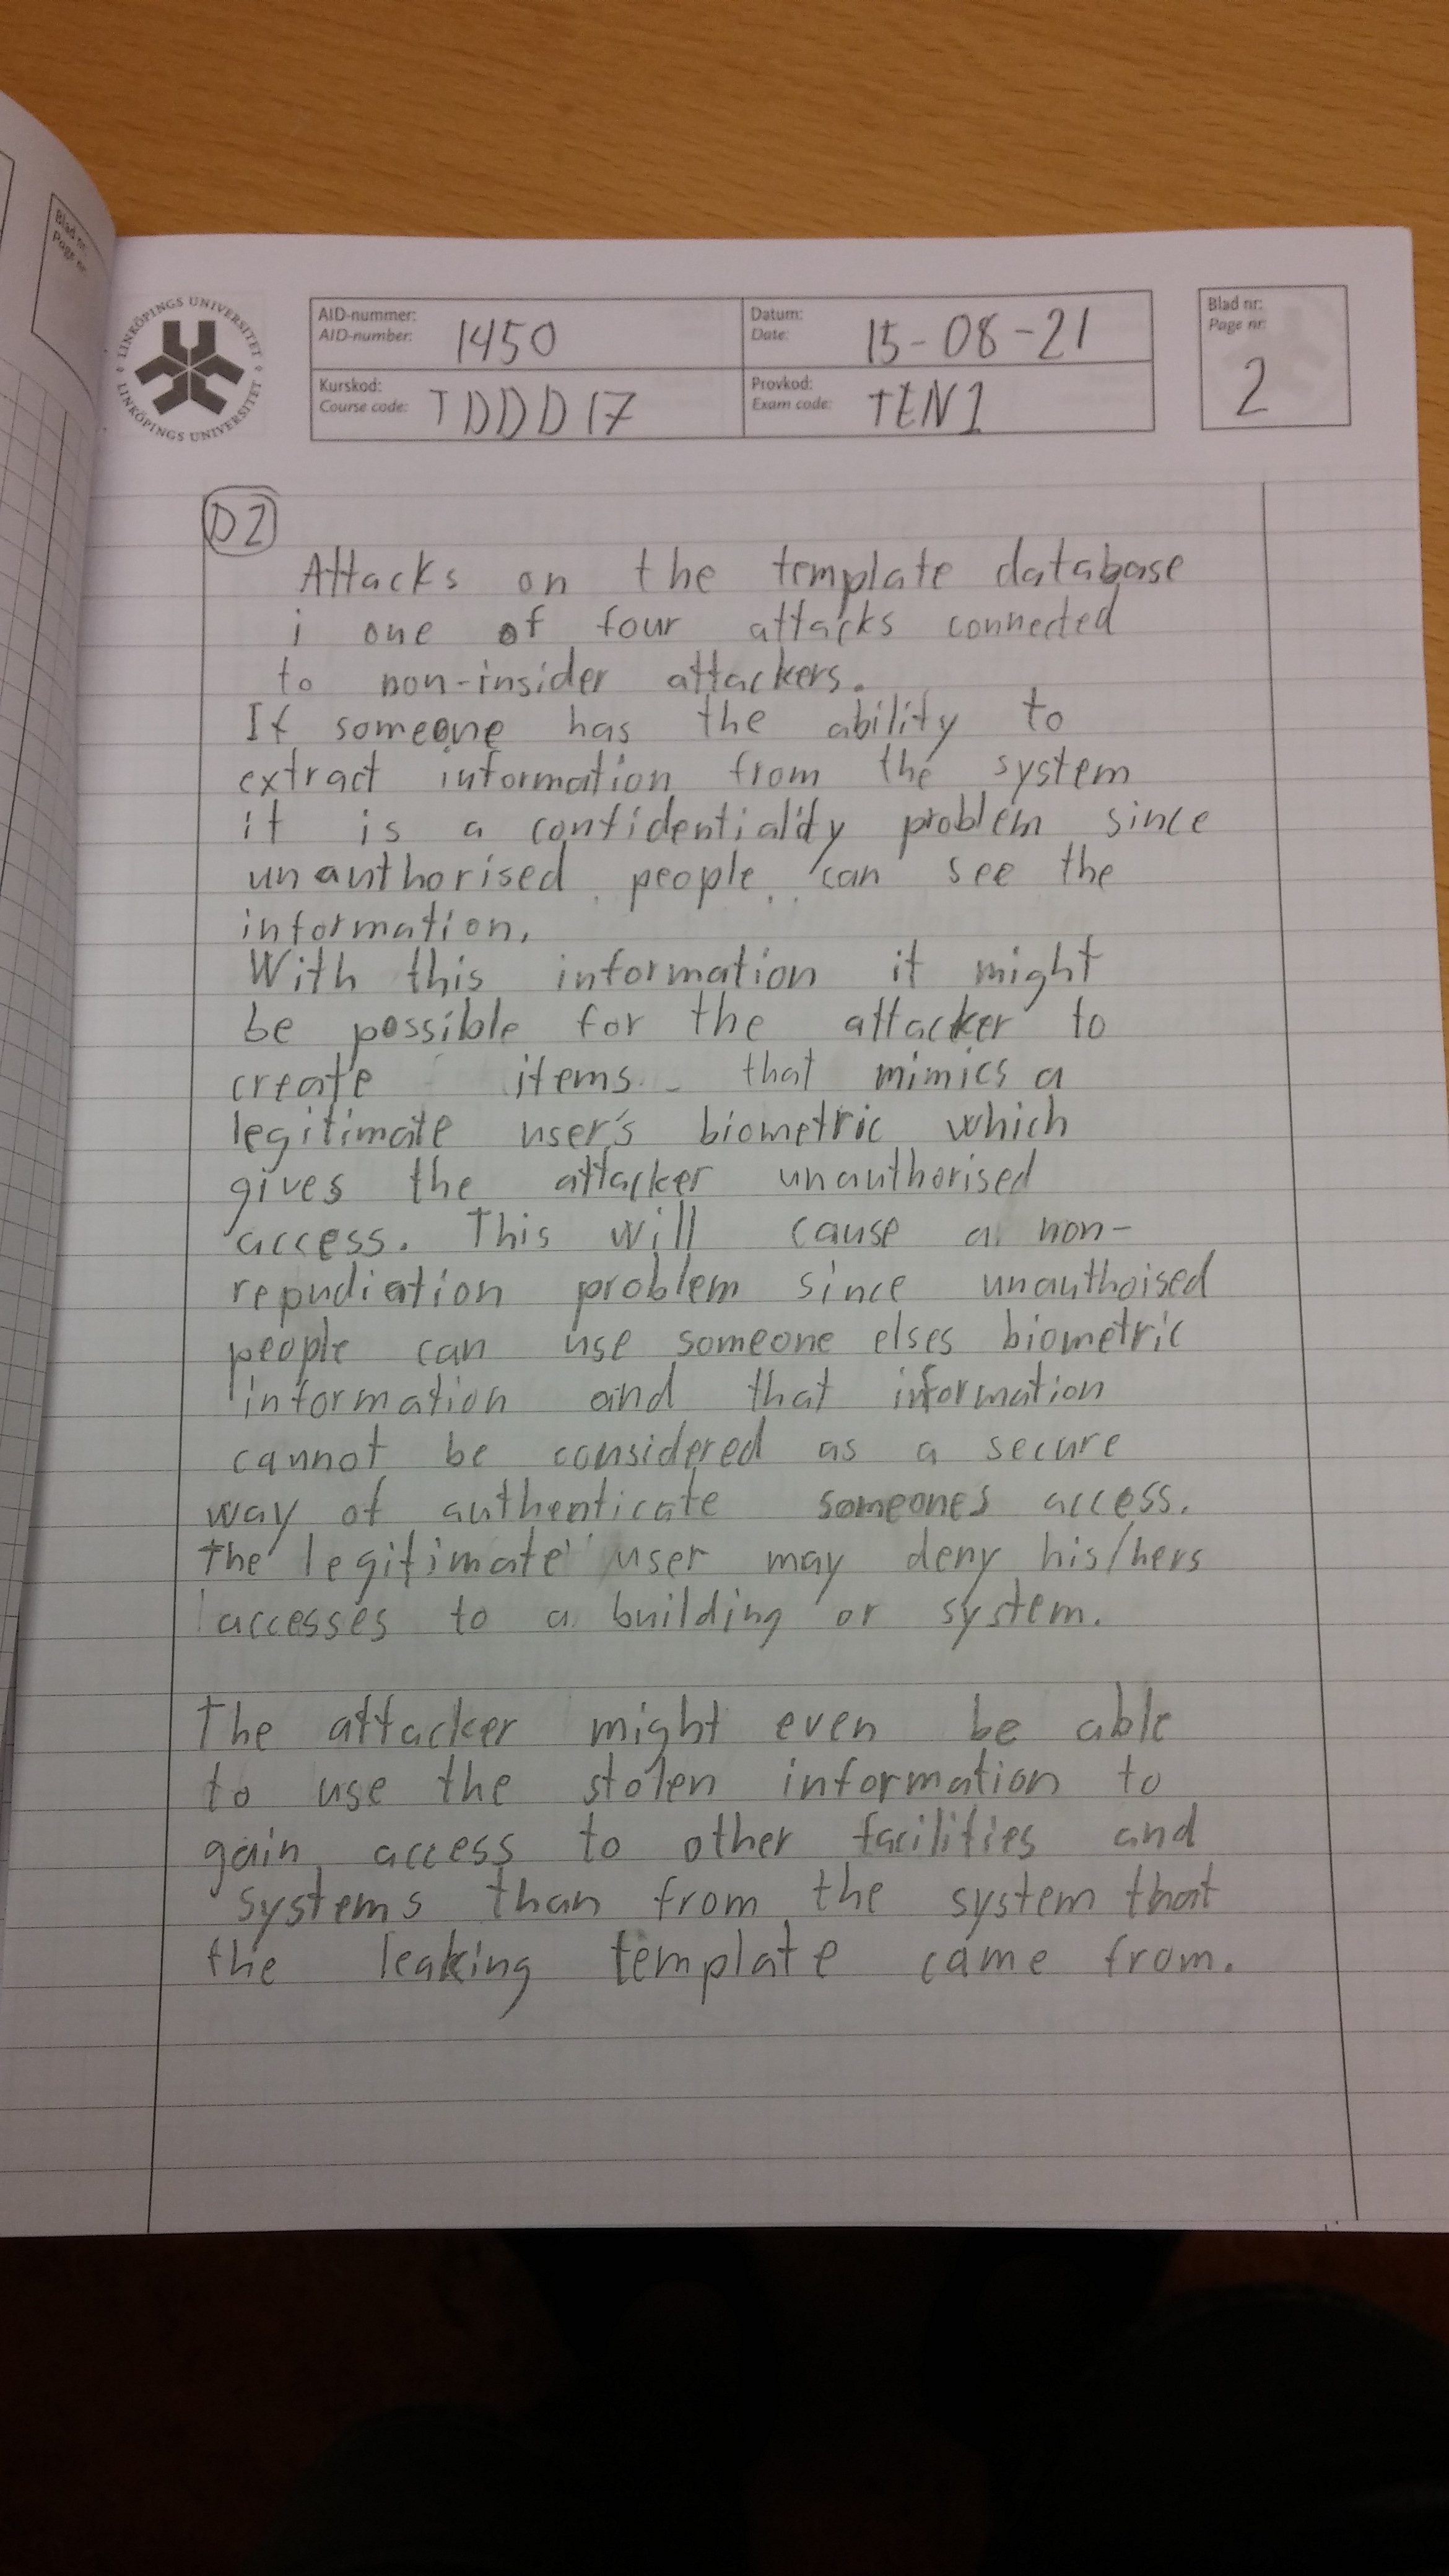 Blad nr:
Page nr:
LINKÖPINGS UNIVERSITET
LINKÖPINGS UNIVERSITET
AID-nummer:
AID-number: 1450
Datum:
Date: 15-08-21
Blad nr:
Page nr:
2
Kurskod:
Course code: TDDD17
Provkod:
Exam code: TEN1
D2
Attacks on the template database
i one of four attacks connected
to non-insider attackers.
If someone has the ability to
extract information from the system
it is a confidentiality problem since
unauthorised people can see the
information.
With this information it might
be possible for the attacker to
create items that mimics a
legitimate user's biometric which
gives the attacker unauthorised
access. This will cause a non-
repudiation problem since unauthoised
people can use someone elses biometric
information and that information
cannot be considered as a secure
way of authenticate someones access.
The legitimate user may deny his/hers
accesses to a building or system.
The attacker might even be able
to use the stolen information to
gain access to other facilities and
systems than from the system that
the leaking template came from.